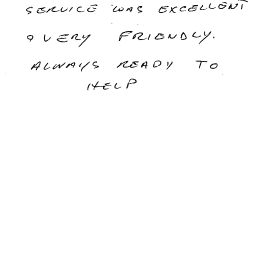 SERVICE WAS EXCELLENT
& VERY FRIENDLY.
ALWAYS READY TO
HELP